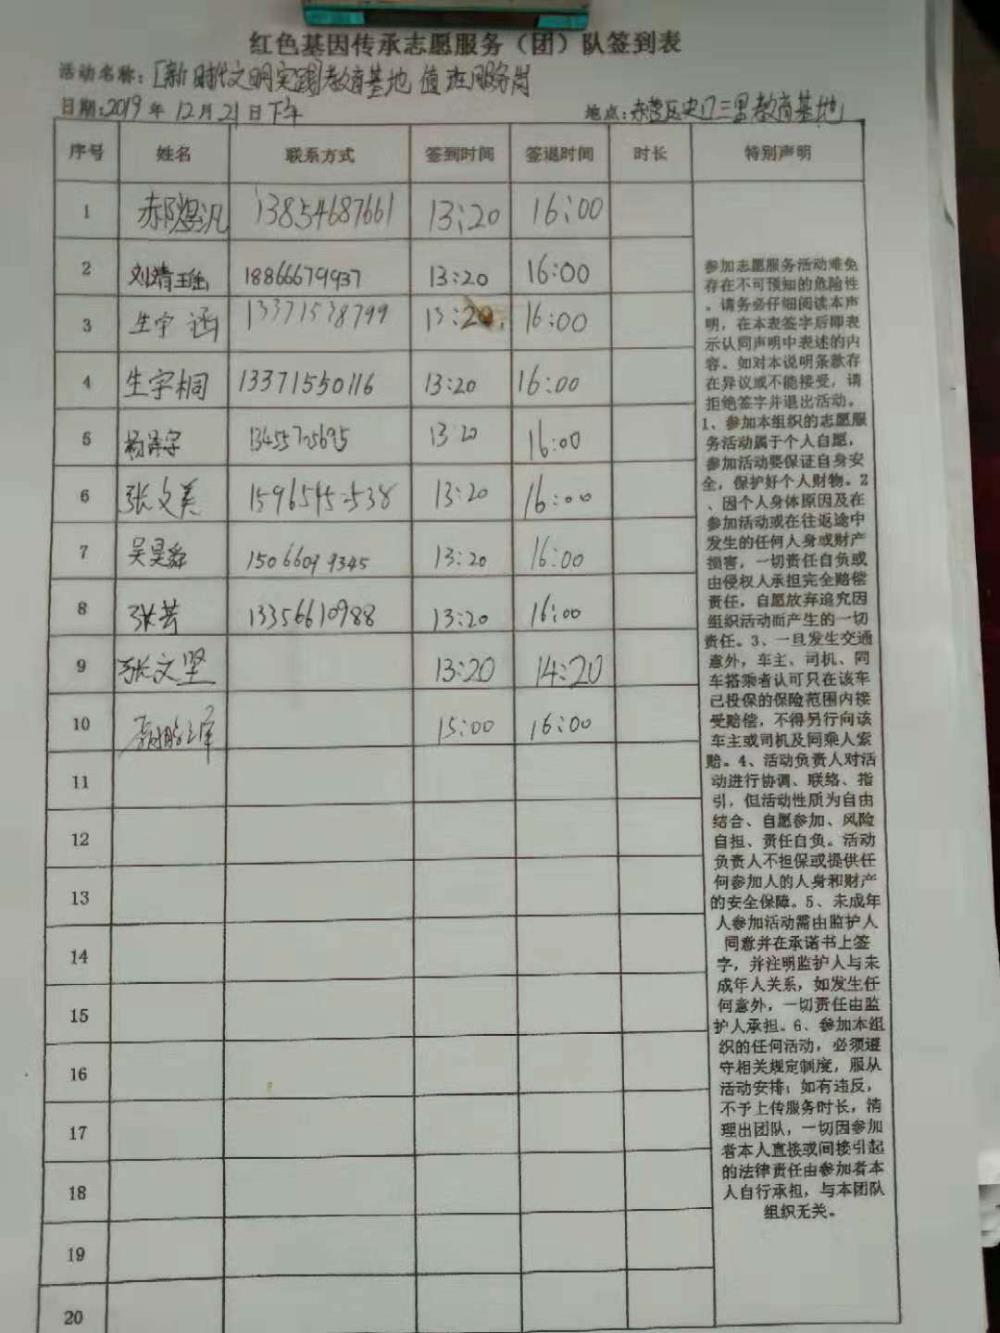 红色基因传承志愿服务（团）队签到表
活动名称：[新时代文明实践]教育基地 值班服务岗
日期：2019年12月21日下午 地点：东营区史口三里教育基地
序号 姓名 联系方式 签到时间 签退时间 时长 特别声明
1 郝煜汎 13854687661 13:20 16:00
2 刘靖瑶 18866679937 13:20 16:00
3 生宇涵 13371538799 13:20 16:00
4 生宇桐 13371550116 13:20 16:00
5 13455705695 13:20 16:00
6 张文美 13:20 16:00
7 吴昊舜 15066099345 13:20 16:00
8 张芸 13356610988 13:20 16:00
9 张文坚 13:20 14:20
10 15:00 16:00
11
12
13
14
15
16
17
18
19
20
参加志愿服务活动难免
存在不可预知的危险性
，请务必仔细阅读本声
明，在本表签字后即表
示认同声明中表述的内
容。如对本说明条款存
在异议或不能接受，请
拒绝签字并退出活动。
1、参加本组织的志愿服
务活动属于个人自愿，
参加活动要保证自身安
全，保护好个人财物。2
、因个人身体原因及在
参加活动或在往返途中
发生的任何人身或财产
损害，一切责任自负或
由侵权人承担完全赔偿
责任，自愿放弃追究因
组织活动而产生的一切
责任。3、一旦发生交通
意外，车主、司机、同
车搭乘者认可只在该车
已投保的保险范围内接
受赔偿，不得另行向该
车主或司机及同乘人索
赔。4、活动负责人对活
动进行协调、联络、指
引，但活动性质为自由
结合、自愿参加、风险
自担、责任自负。活动
负责人不担保或提供任
何参加人的人身和财产
的安全保障。5、未成年
人参加活动需由监护人
同意并在承诺书上签
字，并注明监护人与未
成年人关系，如发生任
何意外，一切责任由监
护人承担。6、参加本组
织的任何活动，必须遵
守相关规定制度，服从
活动安排；如有违反，
不予上传服务时长，清
理出团队，一切因参加
者本人直接或间接引起
的法律责任由参加者本
人自行承担，与本团队
组织无关。